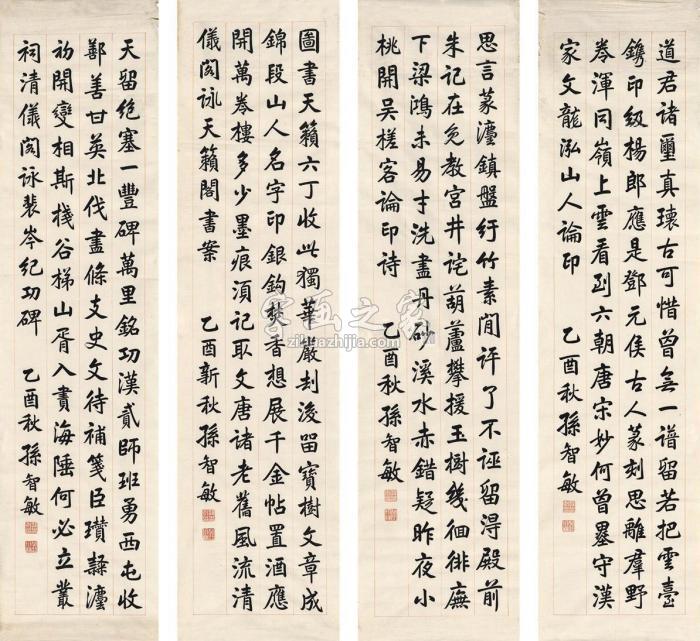 道君諸璽真瓌古可惜曾无一譜留若把雲臺
鐫印級楊郎應是鄧元侯古人篆刻思離羣野
岑渾同嶺上雲看到六朝唐宋妙何曾墨守漢
家文龍泓山人論印 乙酉秋孫智敏
思言篆灋鎮盤紆竹素閒評了不誣留得殿前
朱記在免教宮井詫葫蘆攀援玉樹幾徊徘廡
下梁鴻未易寸洗盡丹砂溪水赤錯疑昨夜小
桃開吳槎客論印詩 乙酉秋孫智敏
圖書天籟六丁收此獨華嚴刦後留寶樹文章成
錦段山人名字印銀鈎焚香想展千金帖置酒應
開萬卷樓多少墨痕湏記取文唐諸老舊風流清
儀閣詠天籟閣書案 乙酉新秋孫智敏
天留絕塞一豐碑萬里銘功漢貳師班勇西屯收
鄯善甘英北伐盡條支史文待補箋臣瓚隸灋
初開變相斯棧谷梯山胥入畫海陲何必立叢
祠清儀閣詠裴岑紀功碑 乙酉秋孫智敏
字画之家
zihuazhijia.com